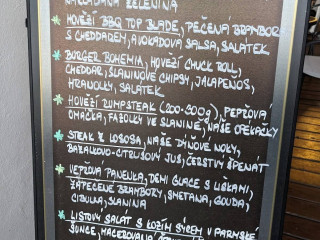 NAKLÁDANÁ ZELENINA
HOVĚZÍ BBQ TOP BLADE, PEČENÁ BRAMBORA
S CHEDDAREM, AVOKÁDOVÁ SALSA, SALÁTEK
BURGER BOHEMIA, HOVĚZÍ CHUCK ROLL,
CHEDDAR, SLANINOVÉ CHIPSY, JALAPEÑOS,
HRANOLKY, SALÁTEK
HOVĚZÍ RUMPSTEAK (200-500g), PEPŘOVÁ
OMÁČKA, FAZOLKY VE SLANINĚ, NAŠE OPEKÁČKY
STEAK Z LOSOSA, NAŠE DÝŇOVÉ NOKY,
BAZALKOVO-CITRUSOVÝ JUS, ČERSTVÝ ŠPENÁT
VEPŘOVÁ PANENKA, DEMI GLACE S LIŠKAMI,
ZAPEČENÉ BRAMBORY, SMETANA, GOUDA,
CIBULA, SLANINA
LISTOVÝ SALÁT S KOZÍM SÝREM V PARMSKÉ
ŠUNCE, MACEROVANÁ